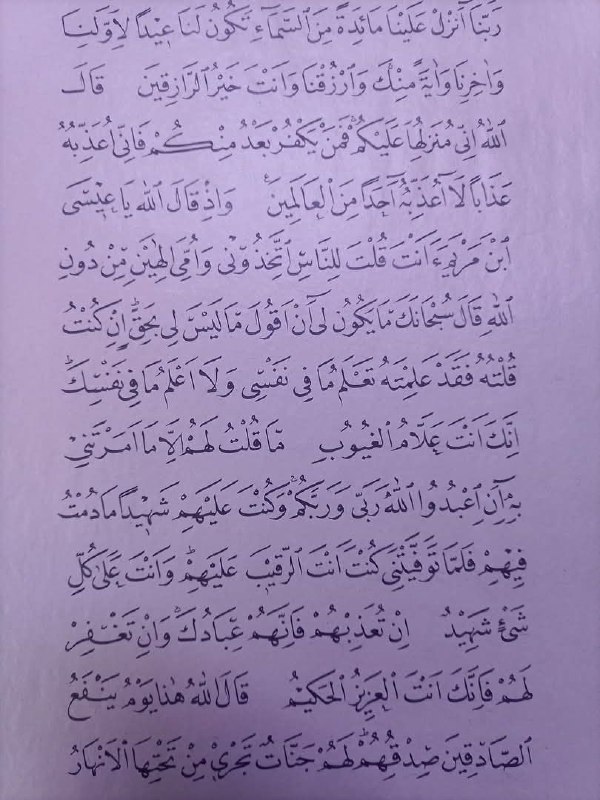 رَبَّنَا اَنْزِلْ عَلَيْنَا مَائِدَةً مِنَ السَّمَاءِ تَكُونُ لَنَا عِيْداً لِاَوَّلِنَا
وَاٰخِرِنَا وَاٰيَةً مِنْكَ وَارْزُقْنَا وَاَنْتَ خَيْرُ الرَّازِقِينَ قَالَ
اللّٰهُ اِنّى مُنَزِلُهَا عَلَيْكُمْ فَمَنْ يَكْفُرْ بَعْدُ مِنْكُمْ فَاِنّى اُعَذِّبُهُ
عَذَاباً لَا اُعَذِّبُهُ اَحَداً مِنَ الْعَالَمِينَ وَاِذْ قَالَ اللّٰه يَا عِيْسَى
ابْنَ مَرْيَمَ ءَاَنْتَ قُلْتَ لِلنَّاسِ اتَّخِذُونى وَاُمِّىَ اِلٰهَيْنِ مِنْ دُونِ
اللّٰهِ قَالَ سُبْحَانَكَ مَا يَكُونُ لى اَنْ اَقُولَ مَا لَيْسَ لى بِحَقٍّ اِنْ كُنْتُ
قُلْتُهُ فَقَدْ عَلِمْتَهُ تَعْلَمُ مَا فى نَفْسِى وَلَا اَعْلَمُ مَا فى نَفْسِكَ
اِنَّكَ اَنْتَ عَلَّامُ الْغُيُوبِ مَا قُلْتُ لَهُمْ اِلَّا مَا اَمَرْتَنى
بِهِ اَنِ اعْبُدُوا اللّٰهَ رَبّى وَرَبَّكُمْ وَكُنْتُ عَلَيْهِمْ شَهِيْداً مَا دُمْتُ
فِيْهِمْ فَلَمَّا تَوَفَّيْتَنى كُنْتَ اَنْتَ الرَّقِيْبَ عَلَيْهِمْ وَاَنْتَ عَلٰى كُلِّ
شَىْءٍ شَهِيْدٌ اِنْ تُعَذِبْهُمْ فَاِنَّهُمْ عِبَادُكَ وَاِنْ تَغْفِرْ
لَهُمْ فَاِنَّكَ اَنْتَ الْعَزِيزُ الْحَكِيمُ قَالَ اللّٰهُ هٰذَا يَوْمُ يَنْفَعُ
الصَّادِقِينَ صِدْقُهُمْ لَهُمْ جَنَّاتٌ تَجْرِى مِنْ تَحْتِهَا الْاَنْهَارُ